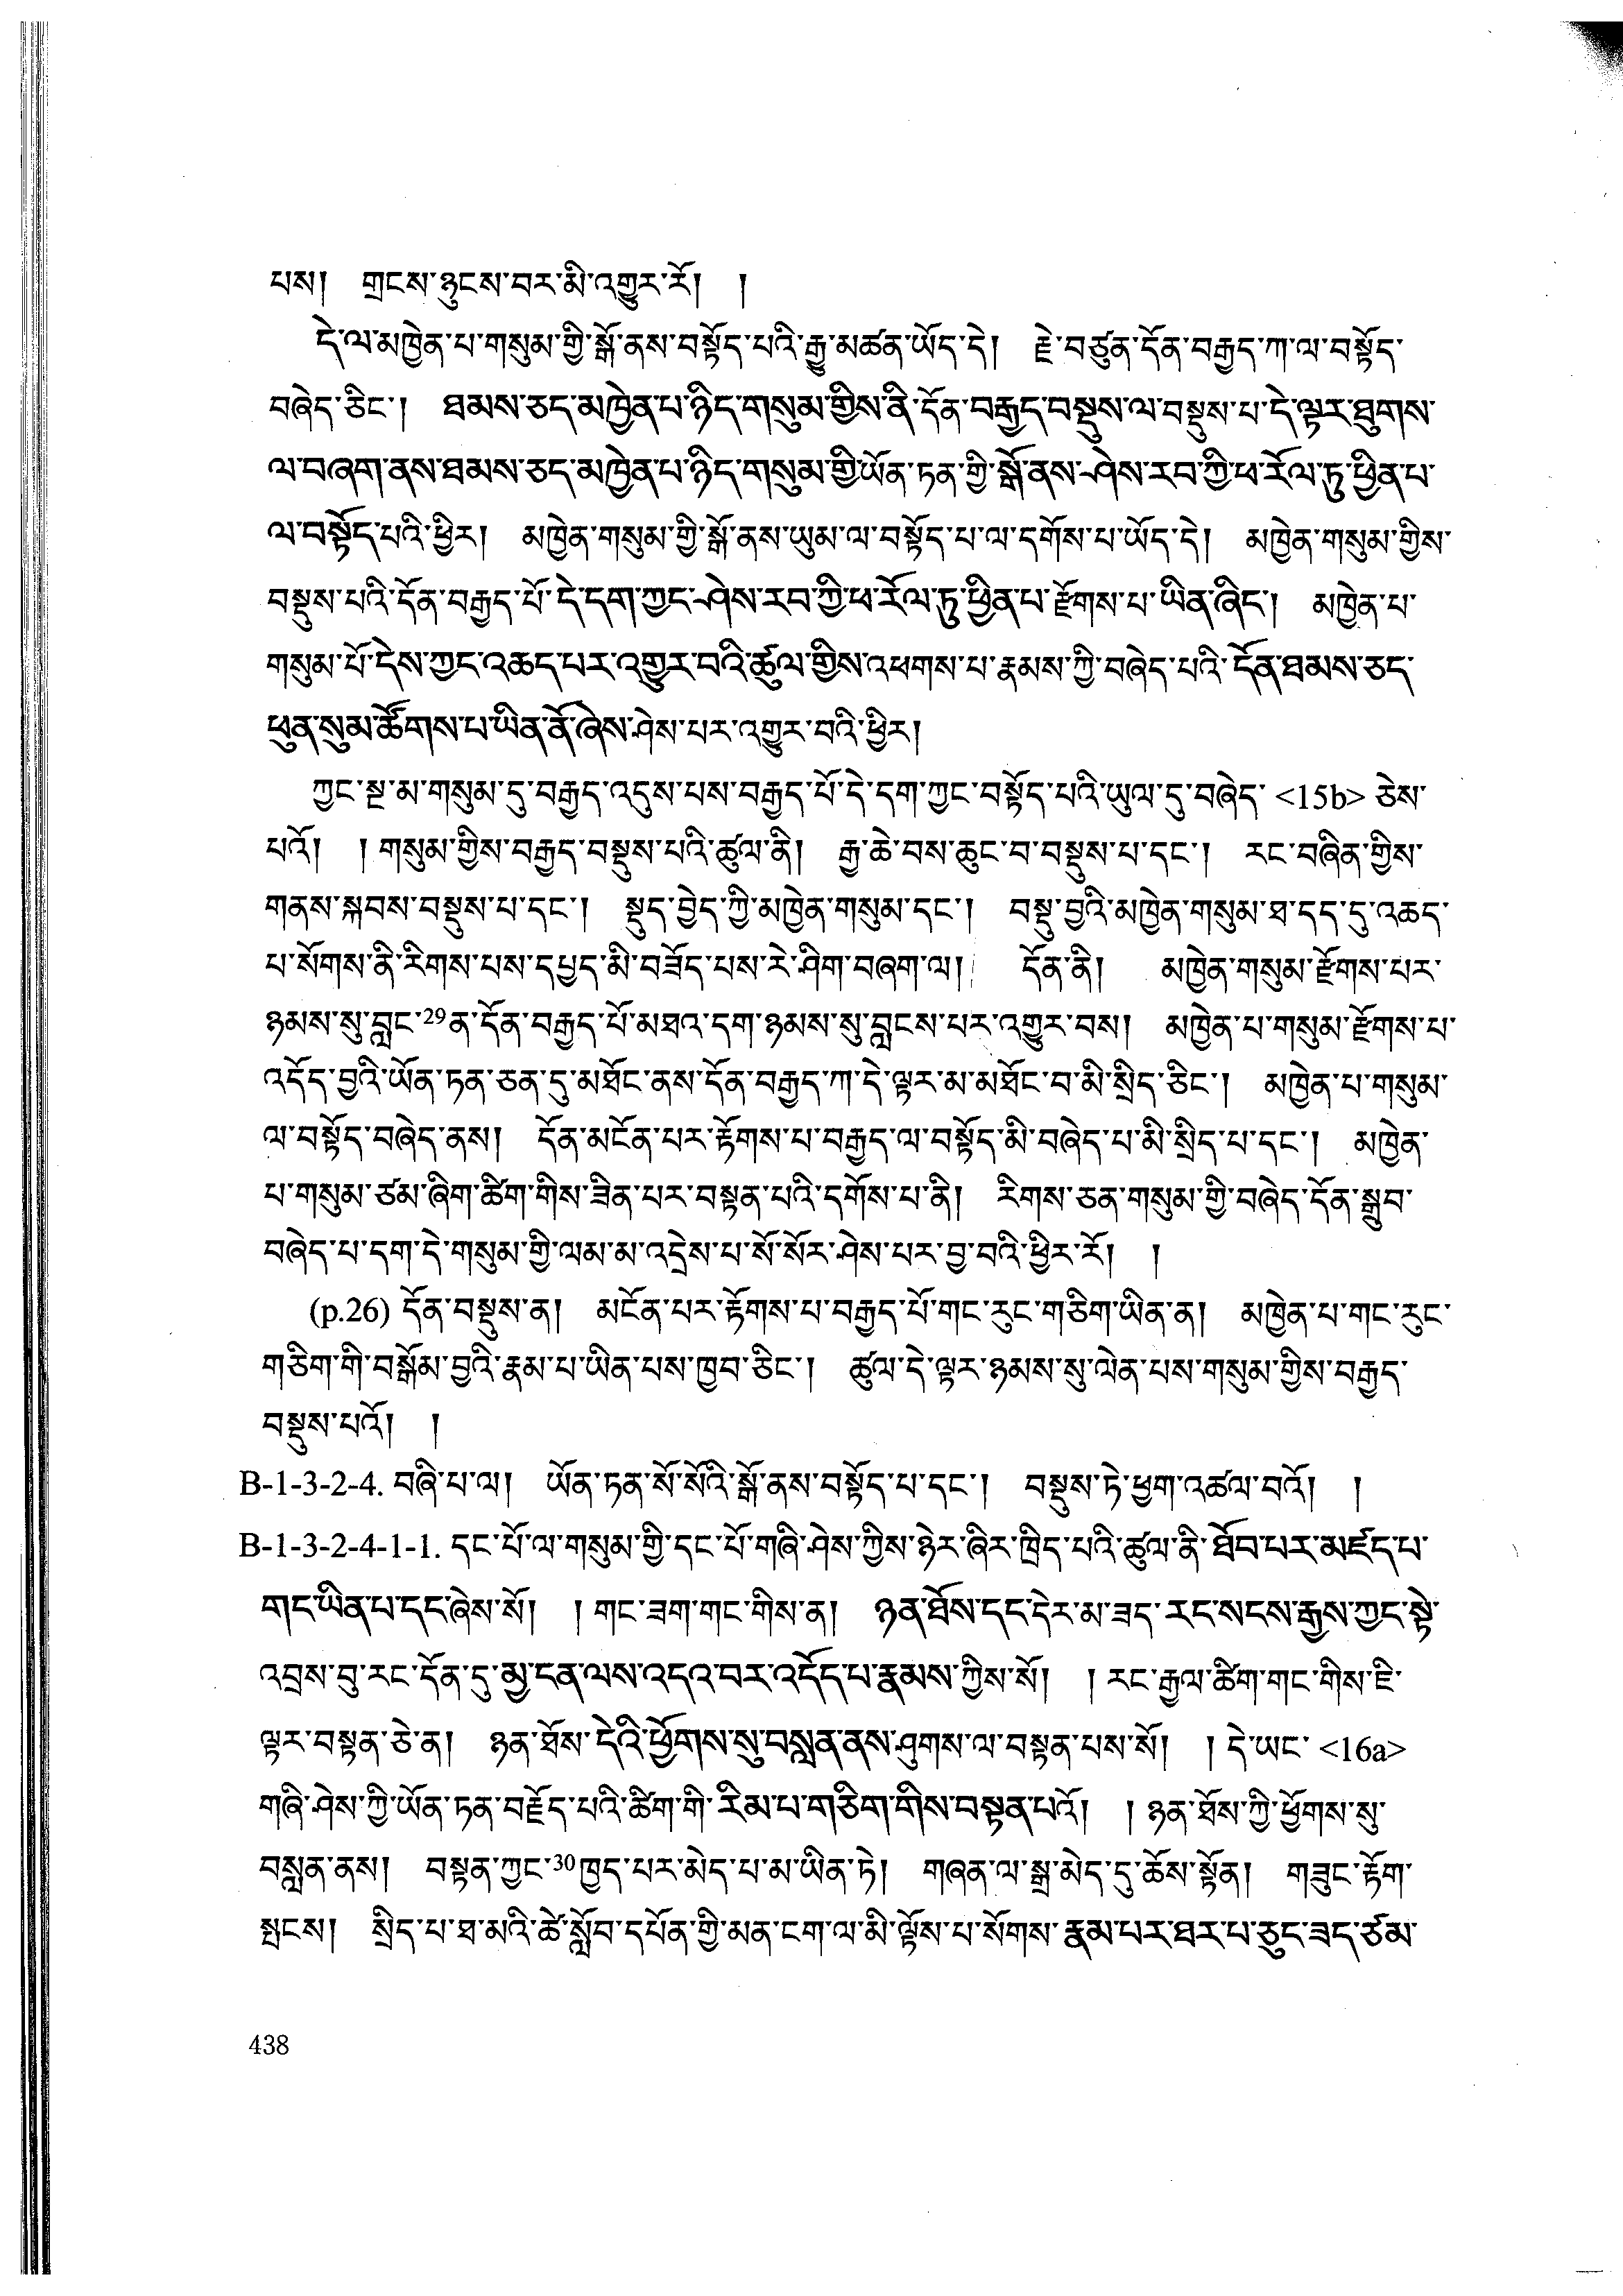 པས། གྲངས་ཉུངས་བར་མི་འགྱུར་རོ། །
དེ་ལ་མཁྱེན་པ་གསུམ་གྱི་སྒོ་ནས་བསྟོད་པའི་རྒྱུ་མཚན་ཡོད་དེ། རྗེ་བཙུན་དོན་བརྒྱད་ཀ་ལ་བསྟོད་
བཞེད་ཅིང་། ཐམས་ཅད་མཁྱེན་པ་ཉིད་གསུམ་གྱིས་ནི་དོན་བརྒྱད་བསྡུས་ལ་བསྡུས་པ་དེ་ལྟར་ཐུགས་
ལ་བཞག་ནས་ཐམས་ཅད་མཁྱེན་པ་ཉིད་གསུམ་གྱི་ཡོན་ཏན་གྱི་སྒོ་ནས་ཤེས་རབ་ཀྱི་ཕ་རོལ་ཏུ་ཕྱིན་པ་
ལ་བསྟོད་པའི་ཕྱིར། མཁྱེན་གསུམ་གྱི་སྒོ་ནས་ཡུམ་ལ་བསྟོད་པ་ལ་དགོས་པ་ཡོད་དེ། མཁྱེན་གསུམ་གྱིས་
བསྡུས་པའི་དོན་བརྒྱད་པོ་དེ་དག་ཀྱང་ཤེས་རབ་ཀྱི་ཕ་རོལ་ཏུ་ཕྱིན་པ་རྫོགས་པ་ཡིན་ཞིང་། མཁྱེན་པ་
གསུམ་པོ་དེས་ཀྱང་འཆད་པར་འགྱུར་བའི་ཚུལ་གྱིས་འཕགས་པ་རྣམས་ཀྱི་བཞེད་པའི་དོན་ཐམས་ཅད་
ཕུན་སུམ་ཚོགས་པ་ཡིན་ནོ་ཞེས་ཤེས་པར་འགྱུར་བའི་ཕྱིར།
ཀྱང་སྔ་མ་གསུམ་དུ་བརྒྱད་འདུས་པས་བརྒྱད་པོ་དེ་དག་ཀྱང་བསྟོད་པའི་ཡུལ་དུ་བཞེད་ <15b> ཅེས་
པའོ། །གསུམ་གྱིས་བརྒྱད་བསྡུས་པའི་ཚུལ་ནི། རྒྱ་ཆེ་བས་ཆུང་བ་བསྡུས་པ་དང་། རང་བཞིན་གྱིས་
གནས་སྐབས་བསྡུས་པ་དང་། སྡུད་བྱེད་ཀྱི་མཁྱེན་གསུམ་དང་། བསྡུ་བྱའི་མཁྱེན་གསུམ་ཐ་དད་དུ་འཆད་
པ་སོགས་ནི་རིགས་པས་དཔྱད་མི་བཟོད་པས་རེ་ཤིག་བཞག་ལ། དོན་ནི། མཁྱེན་གསུམ་རྫོགས་པར་
ཉམས་སུ་བླང་²⁹ན་དོན་བརྒྱད་པོ་མཐའ་དག་ཉམས་སུ་བླངས་པར་འགྱུར་བས། མཁྱེན་པ་གསུམ་རྫོགས་པ་
འདོད་བྱའི་ཡོན་ཏན་ཅན་དུ་མཐོང་ནས་དོན་བརྒྱད་ཀ་དེ་ལྟར་མ་མཐོང་བ་མི་སྲིད་ཅིང་། མཁྱེན་པ་གསུམ་
ལ་བསྟོད་བཞེད་ནས། དོན་མངོན་པར་རྟོགས་པ་བརྒྱད་ལ་བསྟོད་མི་བཞེད་པ་མི་སྲིད་པ་དང་། མཁྱེན་
པ་གསུམ་ཙམ་ཞིག་ཚིག་གིས་ཟིན་པར་བསྟན་པའི་དགོས་པ་ནི། རིགས་ཅན་གསུམ་གྱི་བཞེད་དོན་སྒྲུབ་
བཞེད་པ་དག་དེ་གསུམ་གྱི་ལམ་མ་འདྲེས་པ་སོ་སོར་ཤེས་པར་བྱ་བའི་ཕྱིར་རོ། །
(p.26) དོན་བསྡུས་ན། མངོན་པར་རྟོགས་པ་བརྒྱད་པོ་གང་རུང་གཅིག་ཡིན་ན། མཁྱེན་པ་གང་རུང་
གཅིག་གི་བསྒོམ་བྱའི་རྣམ་པ་ཡིན་པས་ཁྱབ་ཅིང་། ཚུལ་དེ་ལྟར་ཉམས་སུ་ལེན་པས་གསུམ་གྱིས་བརྒྱད་
བསྡུས་པའོ། །
B-1-3-2-4. བཞི་པ་ལ། ཡོན་ཏན་སོ་སོའི་སྒོ་ནས་བསྟོད་པ་དང་། བསྡུས་ཏེ་ཕྱག་འཚལ་བའོ། །
B-1-3-2-4-1-1. དང་པོ་ལ་གསུམ་གྱི་དང་པོ་གཞི་ཤེས་ཀྱིས་ཉེར་ཞིར་ཁྲིད་པའི་ཚུལ་ནི་ཐོབ་པར་མཛད་པ་
གང་ཡིན་པ་དང་ཞེས་སོ། །གང་ཟག་གང་གིས་ན། ཉན་ཐོས་དང་དེར་མ་ཟད་རང་སངས་རྒྱས་ཀྱང་སྟེ་
འབྲས་བུ་རང་དོན་དུ་མྱ་ངན་ལས་འདའ་བར་འདོད་པ་རྣམས་ཀྱིས་སོ། །རང་རྒྱལ་ཚིག་གང་གིས་ཇི་
ལྟར་བསྟན་ཅེ་ན། ཉན་ཐོས་དེའི་ཕྱོགས་སུ་བསླན་ནས་ཤུགས་ལ་བསྟན་པས་སོ། །དེ་ཡང་ <16a>
གཞི་ཤེས་ཀྱི་ཡོན་ཏན་བརྗོད་པའི་ཚིག་གི་རིམ་པ་གཅིག་གིས་བསྟན་པའོ། །ཉན་ཐོས་ཀྱི་ཕྱོགས་སུ་
བསླན་ནས། བསྟན་ཀྱང་³⁰ཁྱད་པར་མེད་པ་མ་ཡིན་ཏེ། གཞན་ལ་སྒྲ་མེད་དུ་ཆོས་སྟོན། གཟུང་རྟོག་
སྤངས། སྲིད་པ་ཐ་མའི་ཚེ་སློབ་དཔོན་གྱི་མན་ངག་ལ་མི་ལྟོས་པ་སོགས་རྣམ་པར་ཐར་པ་ཅུང་ཟད་ཙམ་
438